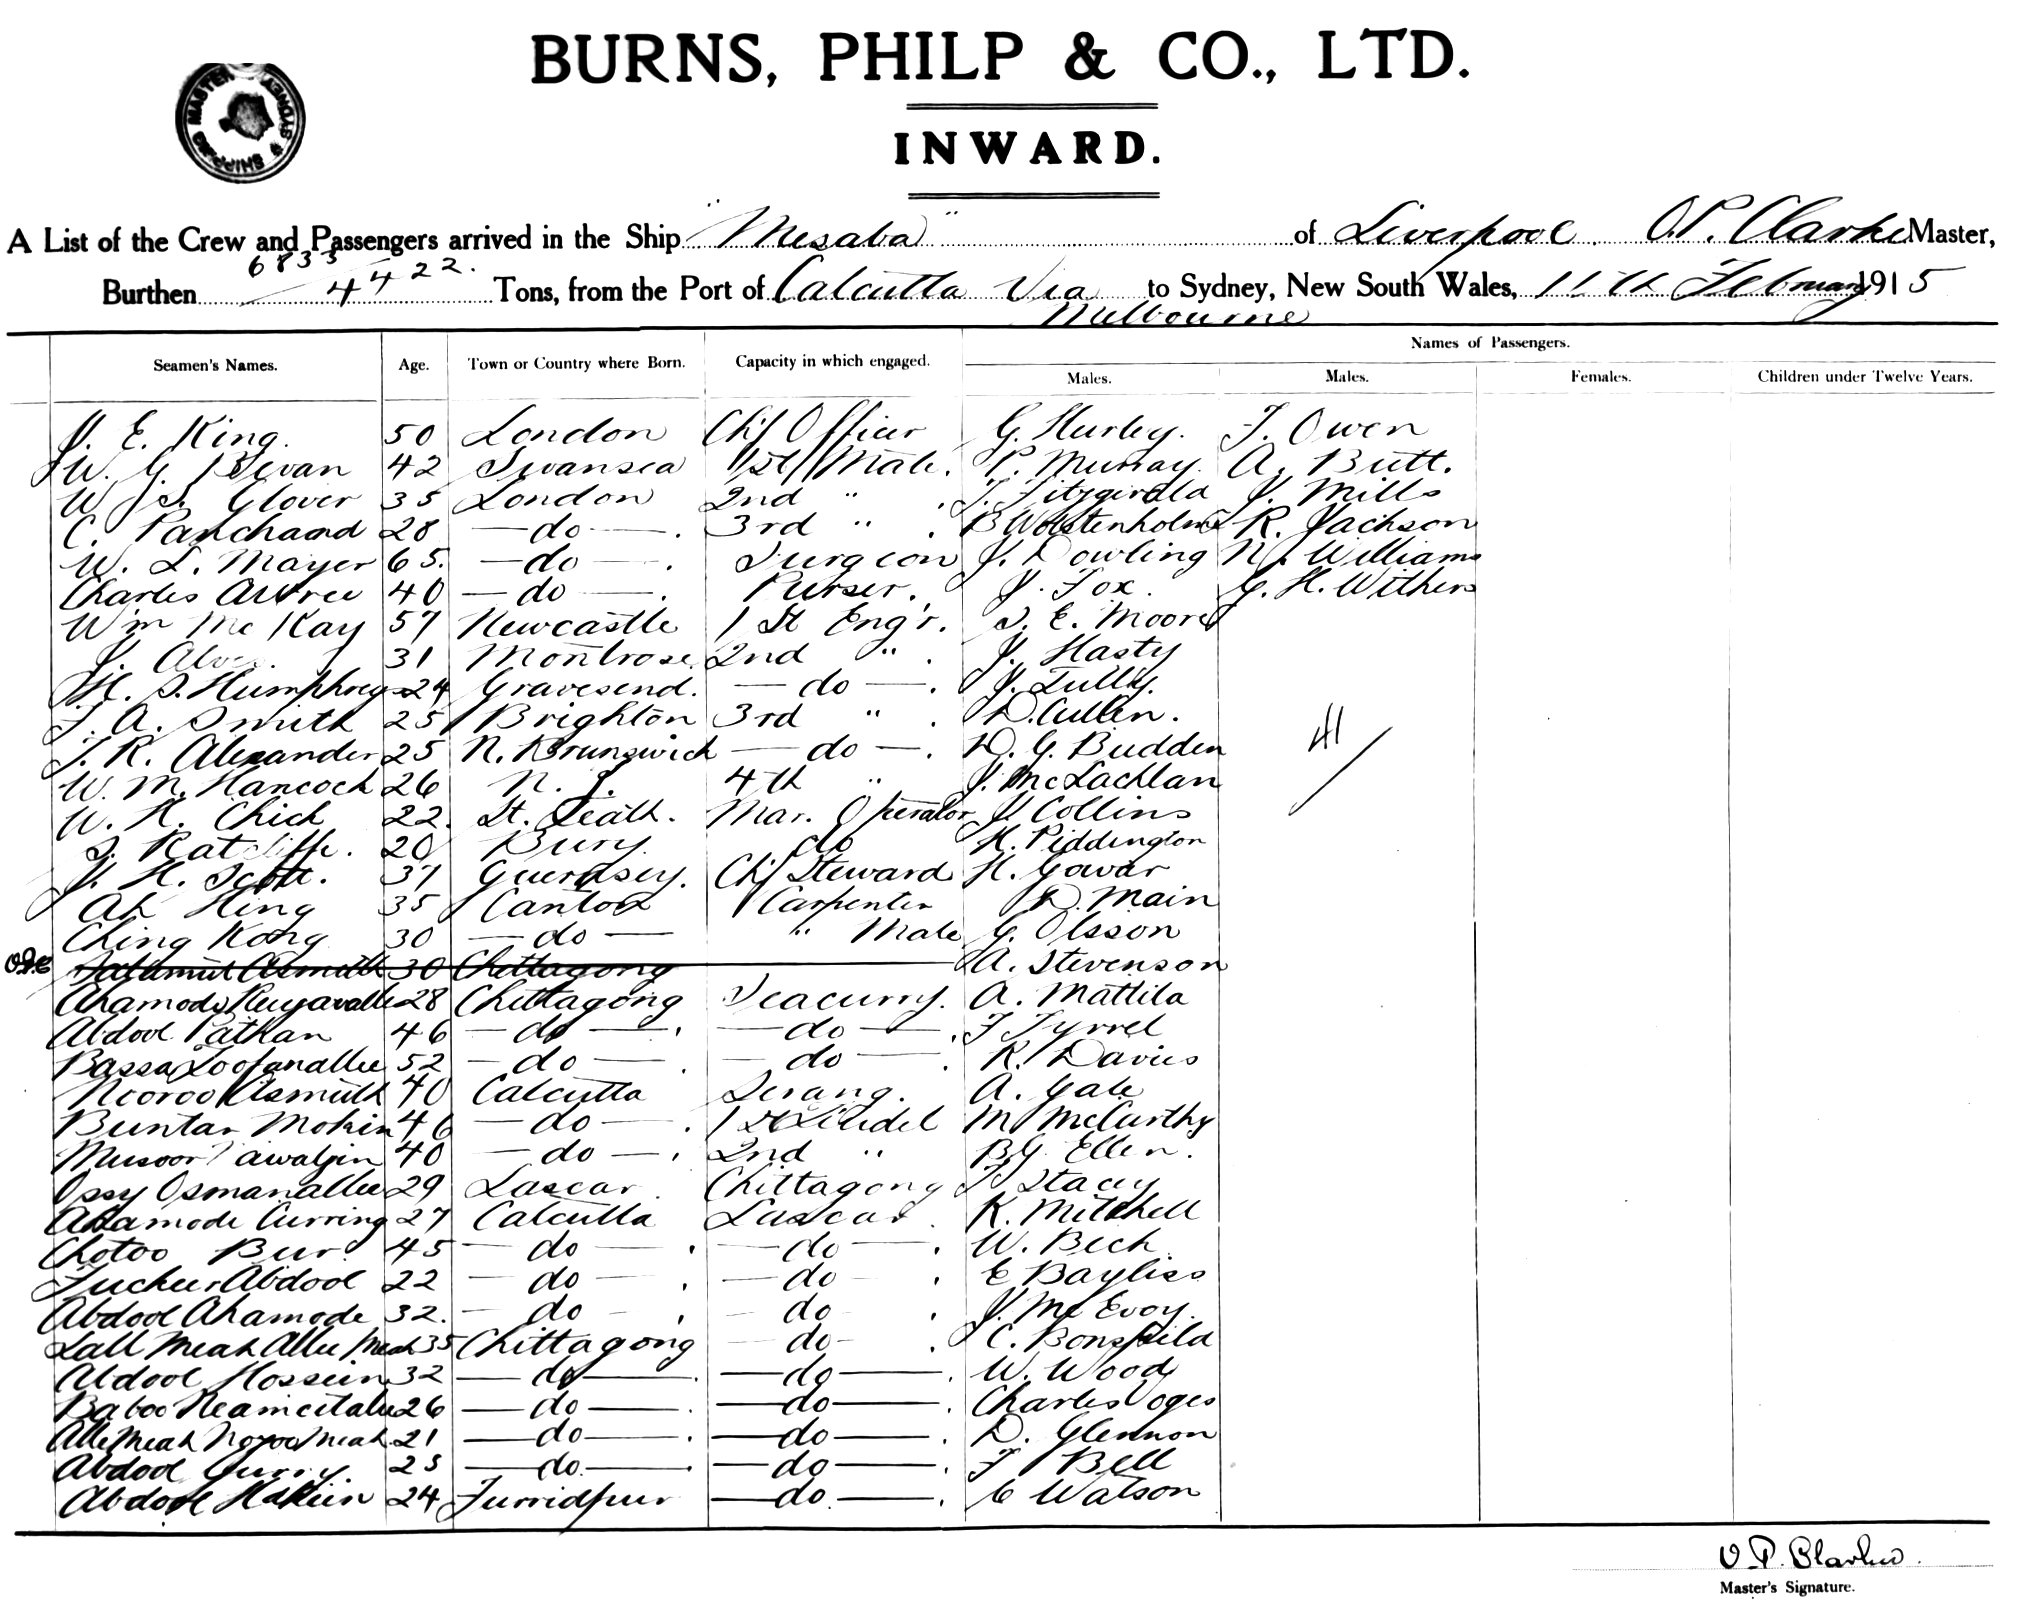 BURNS, PHILP & CO., LTD.
INWARD.
A List of the Crew and Passengers arrived in the Ship "Mesaba" of Liverpool O.P. Clarke Master,
6833
Burthen 4422. Tons, from the Port of Calcutta Via to Sydney, New South Wales, 11th February 1915
Melbourne
Names of Passengers.
Seamen's Names. Age. Town or Country where Born. Capacity in which engaged. Males. Males. Females. Children under Twelve Years.
J. E. King. 50 London Chf Officer G. Hurley. F. Owen
W. G. Bevan 42 Swansea 1st Mate. P. Murray. A. Butt.
W. J. Glover 35 London 2nd " . T. Fitzgerald J. Mills
C. Panchaad 28 — do — . 3rd " . B Wolstenholme R. Jackson
W. L. Mayer 65. — do — . Surgeon J. Dowling N. Williams
Charles Attree 40 — do — . Purser. J. Fox. C. H. Withers
Wm McKay 57 Newcastle 1st Eng'r. S. E. Moore
J. 31 Montrose. 2nd " . J. Hasty
H. S. Humphreys 24 Gravesend. — do — . J. Tully.
F. A. Smith 25 Brighton 3rd " . D. Cullen.
J. R. Alexander 25 N. Brunswick — do — . D. G. Budden
W. M. Hancock 26 N. 4th " J. McLachlan
W. H. Chick 22. St. Mar. Operator J. Collins
S. Ratcliffe. 20 Bury do H. Piddington
J. H. Scott. 37 Guernsey. Chf Steward H. Gowar
Ah Hing 35 Canton Carpenter D. Main
Ching Kong 30 — do — " Mate G. Olsson
30 Chittagong A. Stevenson
Ahamode 28 Chittagong Seacunny. A. Mattila
Abdool Pathan 46 — do — . — do — . F Tyrrel
Bassa Toofanallee 52 — do — . — do — . R. Davies
Nooroo Asmuth 40 Calcutta Serang. A. Gale
Buntar Mokin 46 — do — . 1st Tindel M McCarthy
Musoor 40 — do — . 2nd " B.G. Ellen.
Ossy Osmanallee 29 Lascar Chittagong T Stacey
Ahamode Curring 27 Calcutta Lascar . K. Mitchell
Chotoo Bur 45 — do — . — do — . W. Beck
Fucheer Abdool 22 — do — . — do — . E Bayliss
Abdool Ahamode 32. — do — . — do — . J. McEvoy.
Lall Meah Allee Meah 35 Chittagong do — . C. Bonsfield
Abdool Hossein 32 — do — . — do — . W. Wood
Baboo 26 — do — . — do — . Charles Voges
Alle Meah Noroo Meah. 21 — do — . — do — . D. Glennon
Abdool Gunny. 23 — do. — . — do — . F Bell
Abdool Hakim 24 Furridpur — do. — . C Watson
41
O. P. Clarke.
Master's Signature.